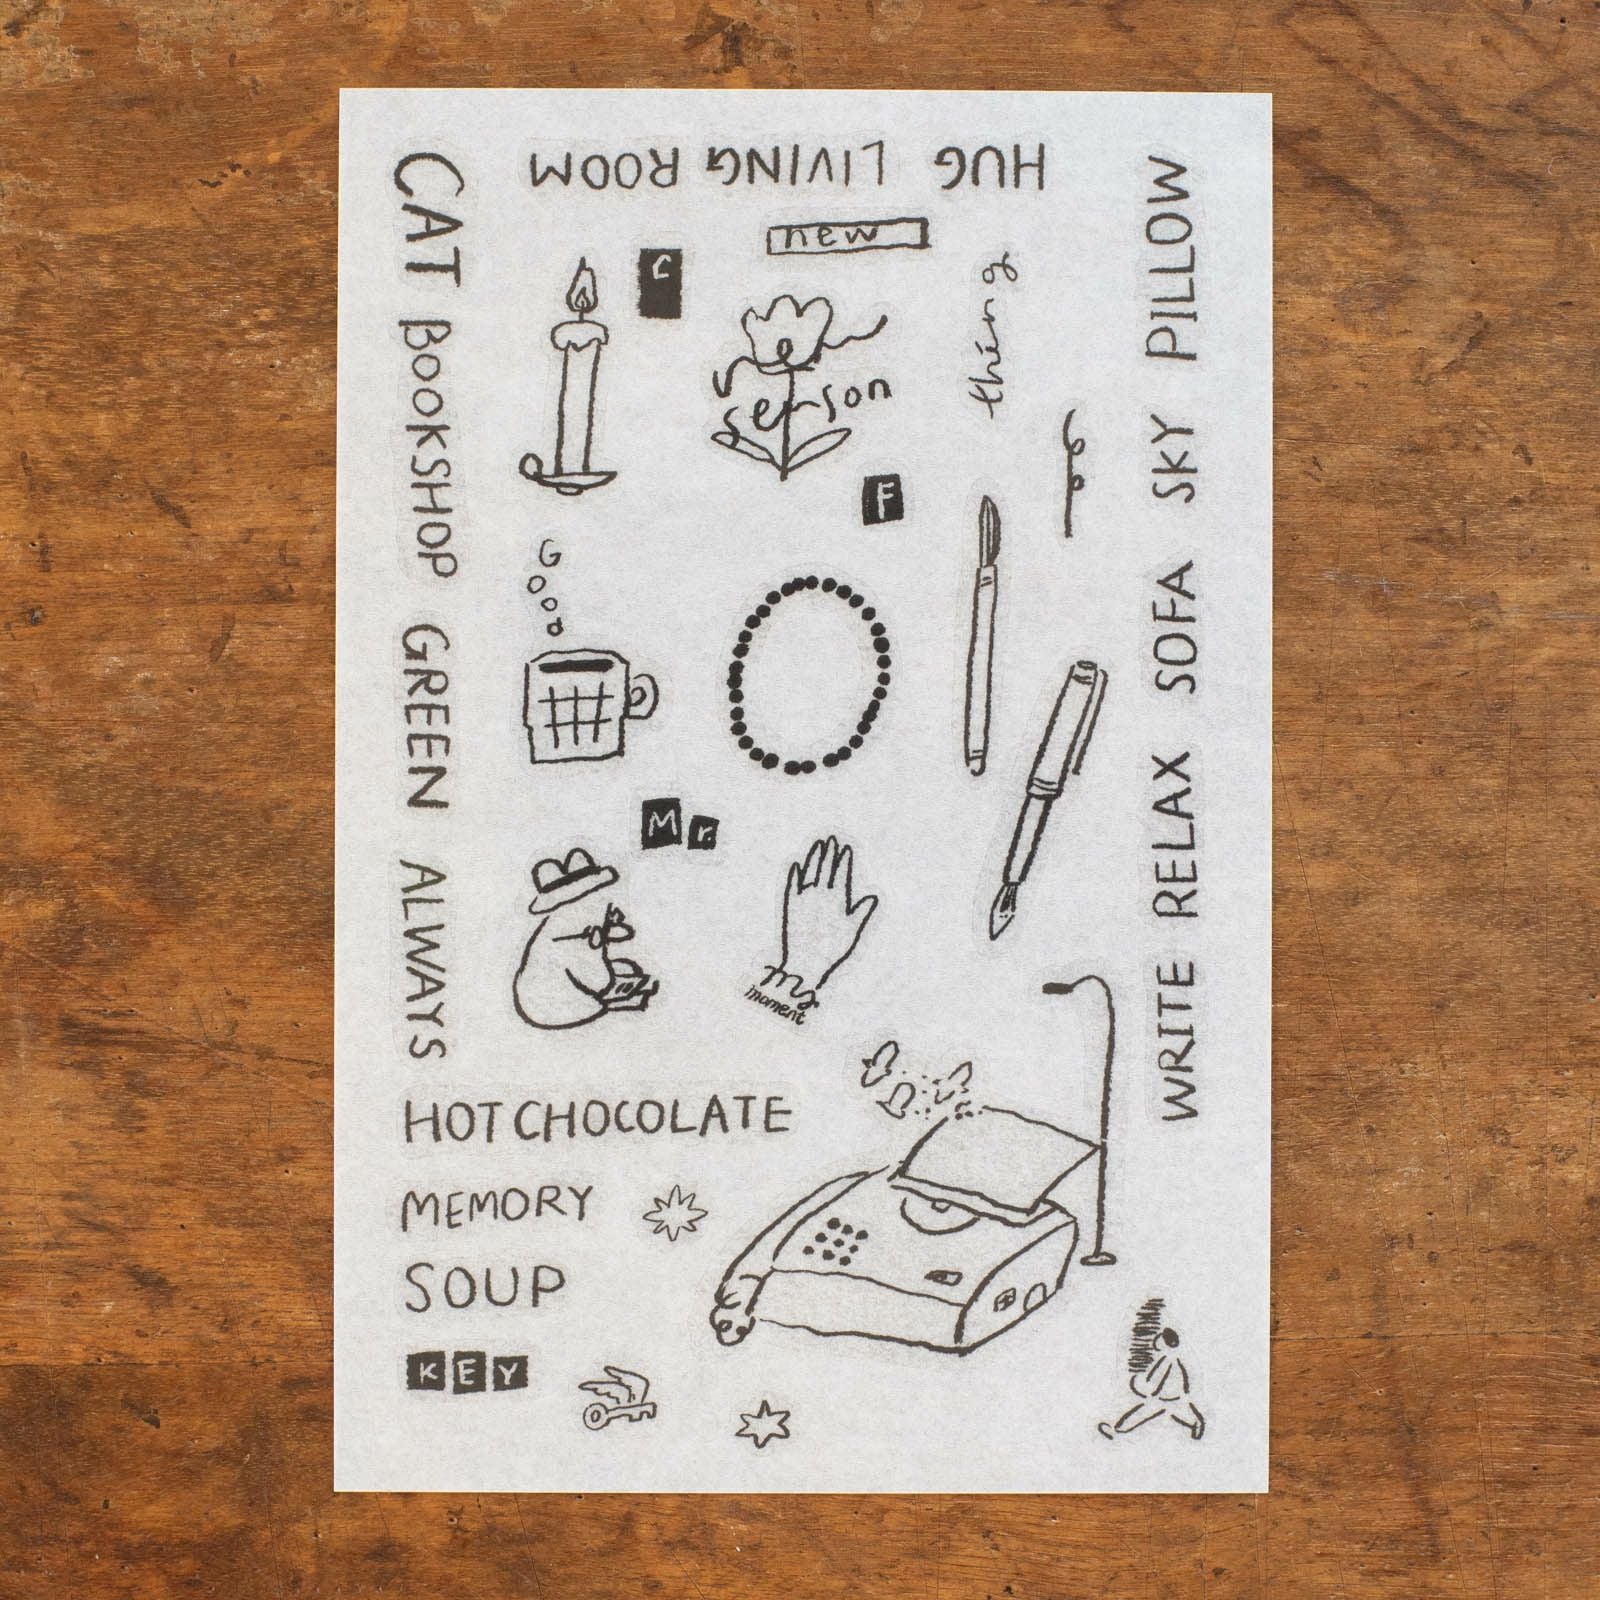 HUG LIVING ROOM
CAT BOOKSHOP GREEN ALWAYS
WRITE RELAX SOFA SKY PILLOW
new
C
thing
season
F
Good
Mr.
my
moment
HOT CHOCOLATE
MEMORY
SOUP
KEY